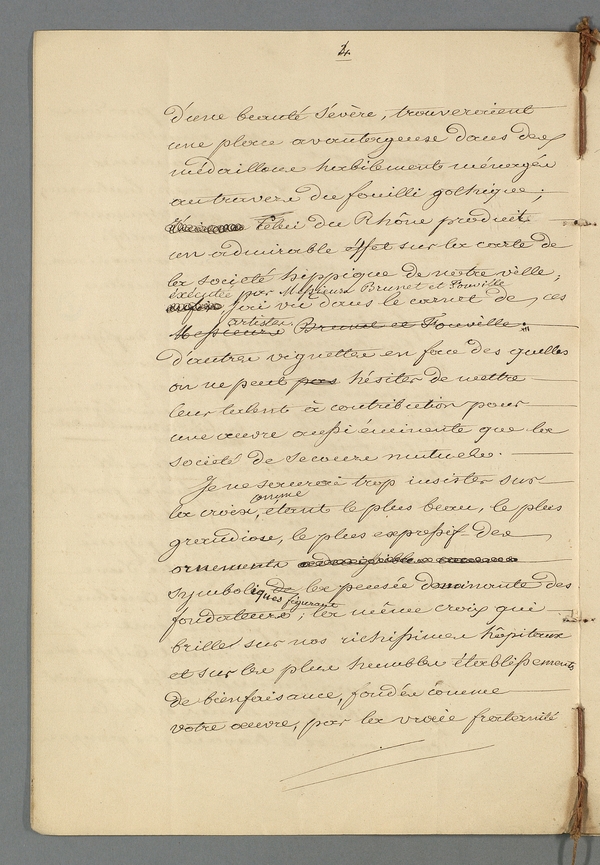 4.
d'une beauté sévère, trouveraient
une place avantageuse dans des
médaillons habilement ménagés
au travers du fouilli gothique;
celui du Rhône produit
un admirable effet sur la carte de
la société hippique de notre ville;
exécutée par Messieurs Brunet et Fonville
J'ai vu dans le carnet de ces
artistes
Messieurs Brunet et Fonville
d'autres vignettes en face des quelles
on ne peut pas hésiter de mettre
leur talent à contribution pour
une œuvre aussi éminente que la
société de secours mutuels.
Je ne saurai trop insister sur
comme
la croix, étant le plus beau, le plus
grandiose, le plus expressif des
ornements
symboliques de la pensée dominante des
figurant
fondateurs; la même croix qui
brille sur nos richissimes hôpitaux
et sur les plus humbles établissements
de bienfaisance, fondés comme
votre œuvre, par la vraie fraternité